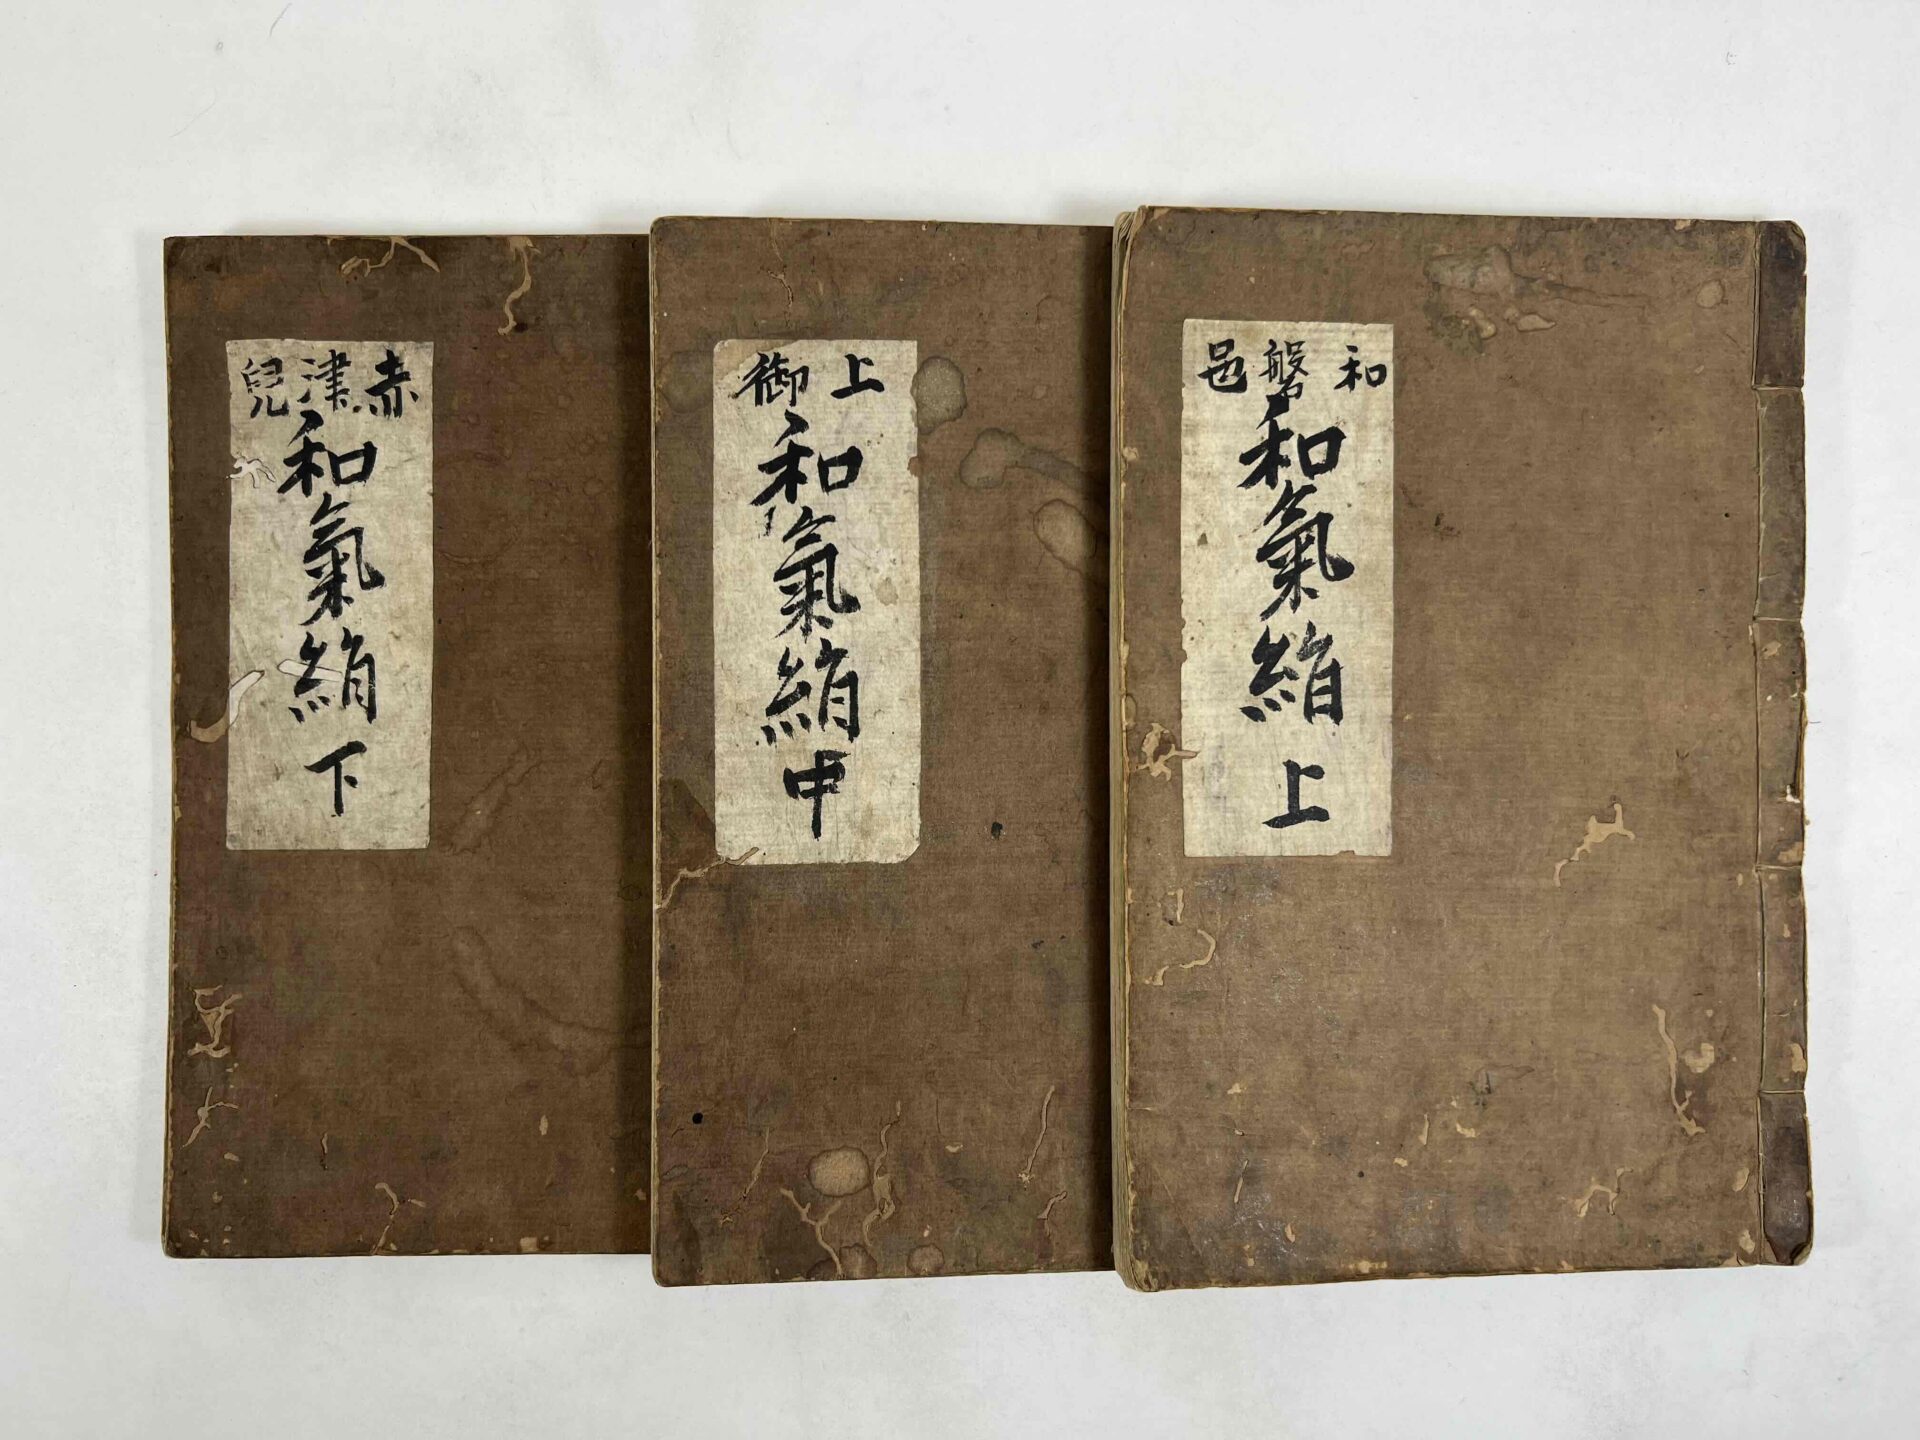 和 磐 邑
和氣絹 上
上 御
和氣絹 中
赤 津 兒
和氣絹 下